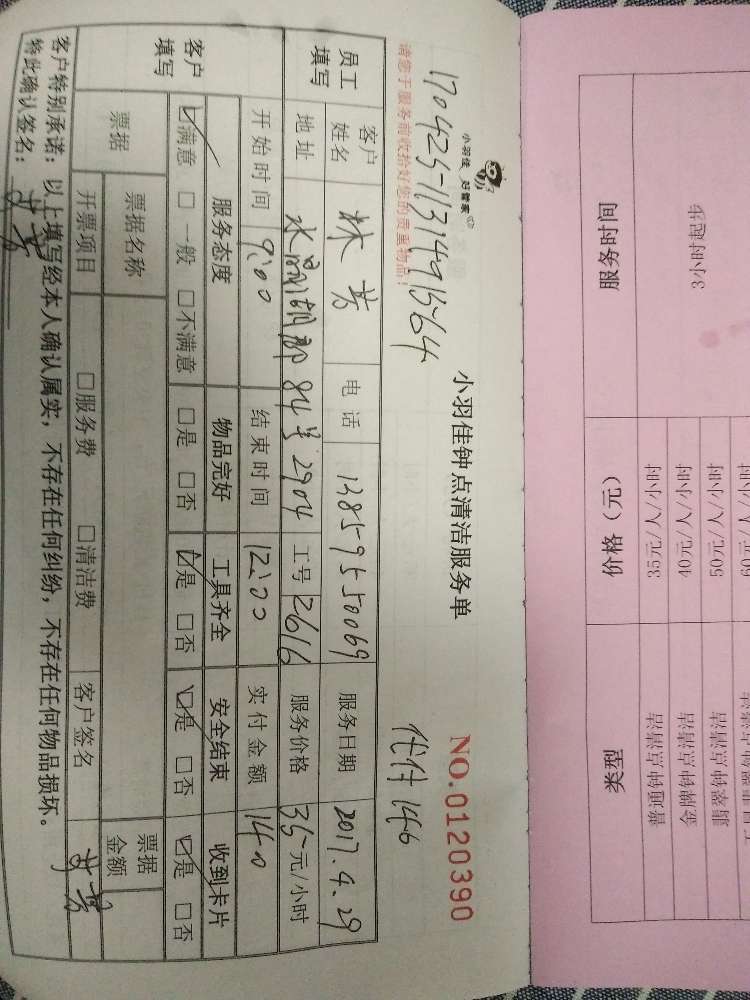 小羽佳 好管家
小羽佳钟点清洁服务单
NO.0120390
170425-113149
代付140
请您于服务前收拾好您的贵重物品!
员工填写
客户姓名 林芳 电话 13859550069 服务日期 2017.4.29
地址 84 2904 工号 2616 服务价格 35元/小时
开始时间 9:00 结束时间 12:00 实付金额 140
客户填写
服务态度 物品完好 工具齐全 安全结束 收到卡片
☑满意 □一般 □不满意 □是 □否 ☑是 □否 ☑是 □否 ☑是 □否
票据
票据名称 票据金额
开票项目 □服务费 □清洁费 客户签名
客户特别承诺:以上填写经本人确认属实,不存在任何纠纷,不存在任何物品损坏。
特此确认签名:
服务时间 价格(元) 类型
3小时起步
35元/人/小时 普通钟点清洁
40元/人/小时 金牌钟点清洁
50元/人/小时 翡翠钟点清洁
60元/人/小时